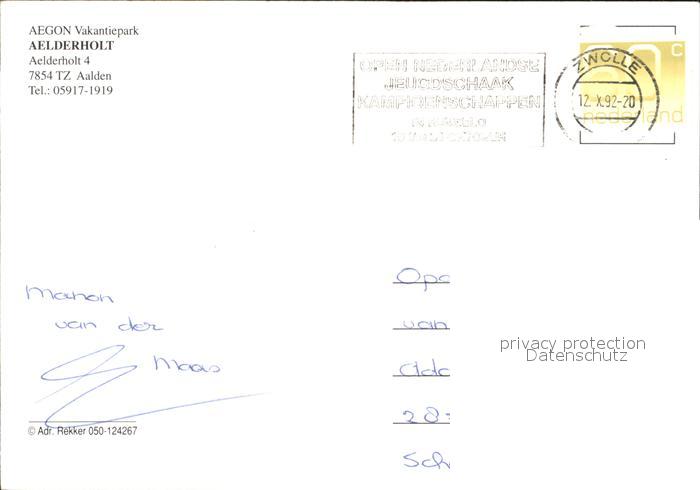 AEGON Vakantiepark
AELDERHOLT
Aelderholt 4
7854 TZ Aalden
Tel.: 05917-1919
OPEN NEDERLANDSE
JEUGDSCHAAK
KAMPIOENSCHAPPEN
ZWOLLE
12.X.92-20
C
nederland
Manon
van der
Maas
Opa
van
28
Sch
privacy protection
Datenschutz
© Adr. Rekker 050-124267